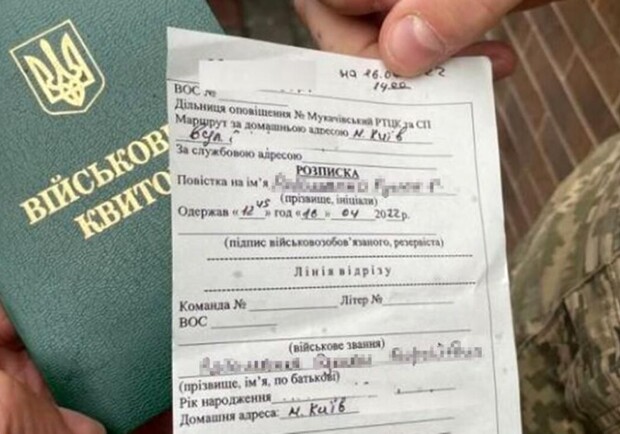 ВІЙСЬКОВ
КВИТО
на 16.0 22
14.00
ВОС №
Дільниця оповіщення № Мукачівський РТЦК та СП
Маршрут за домашньою адресою м. Київ
вул
За службовою адресою
РОЗПИСКА
Повістка на ім'я
(прізвище, ініціали)
Одержав «12 45» год «16» 04 2022р.
(підпис військовозобов'язаного, резервіста)
Лінія відрізу
Команда № Літер №
ВОС
(військове звання)
(прізвище, ім'я, по батькові)
Рік народження
Домашня адреса: м. Київ